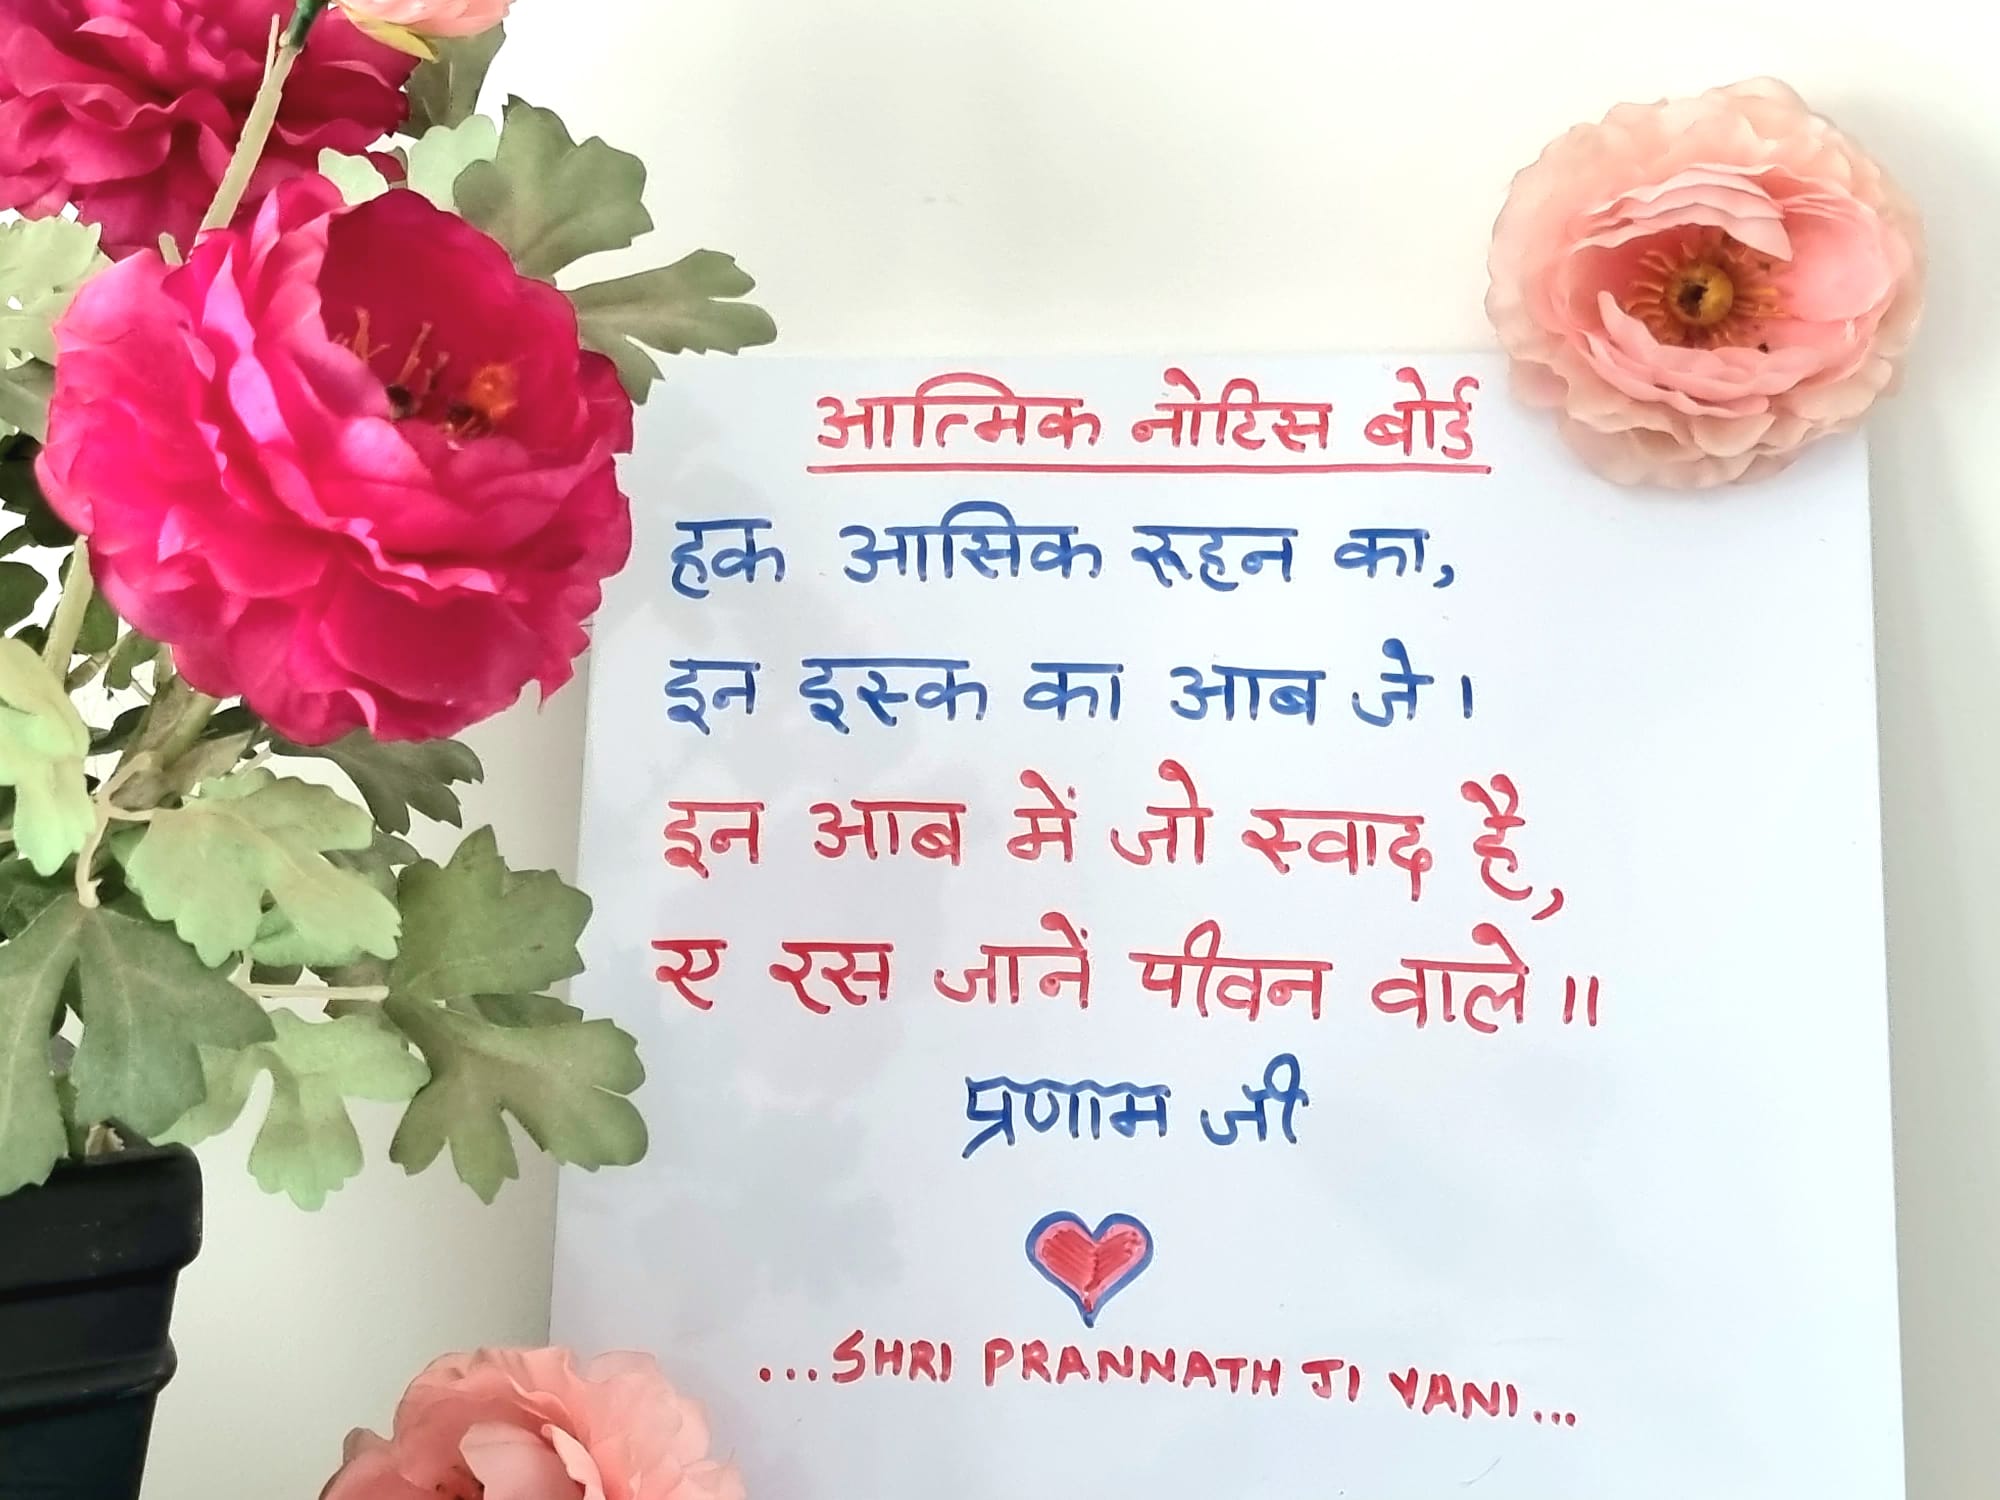 आत्मिक नोटिस बोर्ड
हक आसिक रूहन का,
इन इस्क का आब जे।
इन आब में जो स्वाद है,
ए रस जानें पीवन वाले॥
प्रणाम जी
...SHRI PRANNATH JI VANI...